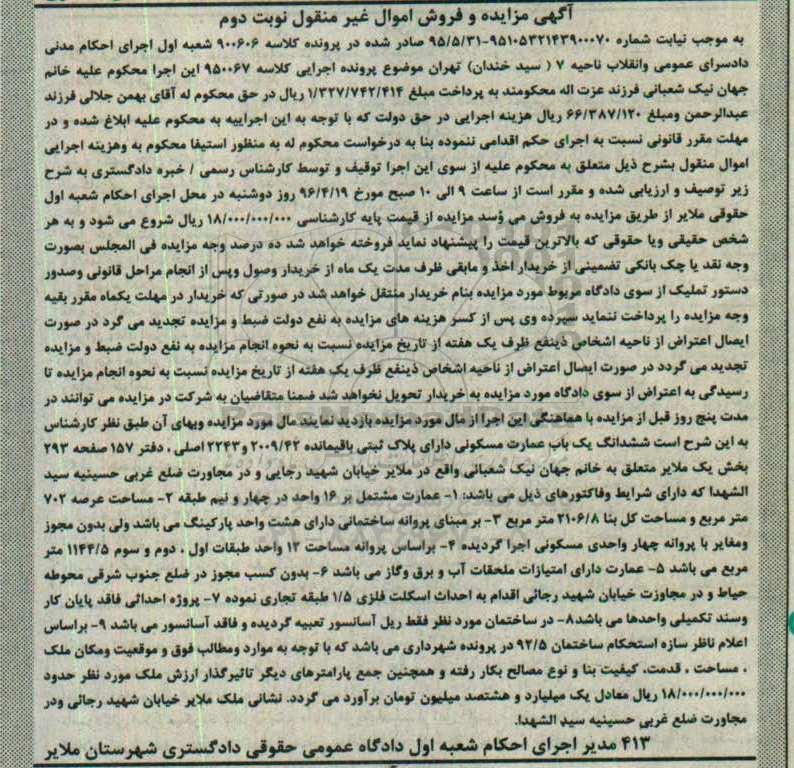 آگهی مزایده و فروش اموال غیر منقول نوبت دوم
به موجب نیابت شماره ۹۵۱۰۵۳۲۱۴۳۹۰۰۰۷۰-۹۵/۵/۳۱ صادر شده در پرونده کلاسه ۹۰۰۶۰۶ شعبه اول اجرای احکام مدنی
دادسرای عمومی وانقلاب ناحیه ۷ ( سید خندان) تهران موضوع پرونده اجرایی کلاسه ۹۵۰۰۶۷ این اجرا محکوم علیه خانم
جهان نیک شعبانی فرزند عزت اله محکومند به پرداخت مبلغ ۱/۳۲۷/۷۴۲/۴۱۴ ریال در حق محکوم له آقای بهمن جلالی فرزند
عبدالرحمن ومبلغ ۶۶/۳۸۷/۱۲۰ ریال هزینه اجرایی در حق دولت که با توجه به این اجراییه به محکوم علیه ابلاغ شده و در
مهلت مقرر قانونی نسبت به اجرای حکم اقدامی ننموده بنا به درخواست محکوم له به منظور استیفا محکوم به وهزینه اجرایی
اموال منقول بشرح ذیل متعلق به محکوم علیه از سوی این اجرا توقیف و توسط کارشناس رسمی / خبره دادگستری به شرح
زیر توصیف و ارزیابی شده و مقرر است از ساعت ۹ الی ۱۰ صبح مورخ ۹۶/۴/۱۹ روز دوشنبه در محل اجرای احکام شعبه اول
حقوقی ملایر از طریق مزایده به فروش می ؤسد مزایده از قیمت پایه کارشناسی ۱۸/۰۰۰/۰۰۰/۰۰۰ ریال شروع می شود و به هر
شخص حقیقی ویا حقوقی که بالاترین قیمت را پیشنهاد نماید فروخته خواهد شد ده درصد وجه مزایده فی المجلس بصورت
وجه نقد یا چک بانکی تضمینی از خریدار اخذ و مابقی ظرف مدت یک ماه از خریدار وصول وپس از انجام مراحل قانونی وصدور
دستور تملیک از سوی دادگاه مربوط مورد مزایده بنام خریدار منتقل خواهد شد در صورتی که خریدار در مهلت یکماه مقرر بقیه
وجه مزایده را پرداخت ننماید سپرده وی پس از کسر هزینه های مزایده به نفع دولت ضبط و مزایده تجدید می گرد در صورت
ایصال اعتراض از ناحیه اشخاص ذینفع ظرف یک هفته از تاریخ مزایده نسبت به نحوه انجام مزایده به نفع دولت ضبط و مزایده
تجدید می گردد در صورت ایصال اعتراض از ناحیه اشخاص ذینفع ظرف یک هفته از تاریخ مزایده نسبت به نحوه انجام مزایده تا
رسیدگی به اعتراض از سوی دادگاه مورد مزایده به خریدار تحویل نخواهد شد ضمنا متقاضیان به شرکت در مزایده می توانند در
مدت پنج روز قبل از مزایده با هماهنگی این اجرا از مال مورد مزایده بازدید نمایند مال مورد مزایده وبهای آن طبق نظر کارشناس
به این شرح است ششدانگ یک باب عمارت مسکونی دارای پلاک ثبتی باقیمانده ۲۰۰۹/۴۲ و۲۲۴۳ اصلی ، دفتر ۱۵۷ صفحه ۲۹۳
بخش یک ملایر متعلق به خانم جهان نیک شعبانی واقع در ملایر خیابان شهید رجایی و در مجاورت ضلع غربی حسینیه سید
الشهدا که دارای شرایط وفاکتورهای ذیل می باشد: ۱- عمارت مشتمل بر ۱۶ واحد در چهار و نیم طبقه ۲- مساحت عرصه ۷۰۲
متر مربع و مساحت کل بنا ۲۱۰۶/۸ متر مربع ۳- بر مبنای پروانه ساختمانی دارای هشت واحد پارکینگ می باشد ولی بدون مجوز
ومغایر با پروانه چهار واحدی مسکونی اجرا گردیده ۴- براساس پروانه مساحت ۱۲ واحد طبقات اول ، دوم و سوم ۱۱۴۴/۵ متر
مربع می باشد ۵- عمارت دارای امتیازات ملحقات آب و برق وگاز می باشد ۶- بدون کسب مجوز در ضلع جنوب شرقی محوطه
حیاط و در مجاوزت خیابان شهید رجائی اقدام به احداث اسکلت فلزی ۱/۵ طبقه تجاری نموده ۷- پروژه احداثی فاقد پایان کار
وسند تکمیلی واحدها می باشد۸- در ساختمان مورد نظر فقط ریل آسانسور تعبیه گردیده و فاقد آسانسور می باشد ۹- براساس
اعلام ناظر سازه استحکام ساختمان ۹۲/۵ در پرونده شهرداری می باشد که با توجه به موارد ومطالب فوق و موقعیت ومکان ملک
، مساحت ، قدمت، کیفیت بنا و نوع مصالح بکار رفته و همچنین جمع پارامترهای دیگر تاثیرگذار ارزش ملک مورد نظر حدود
۱۸/۰۰۰/۰۰۰/۰۰۰ ریال معادل یک میلیارد و هشتصد میلیون تومان برآورد می گردد. نشانی ملک ملایر خیابان شهید رجائی ودر
مجاورت ضلع غربی حسینیه سید الشهدا.
۴۱۳ مدیر اجرای احکام شعبه اول دادگاه عمومی حقوقی دادگستری شهرستان ملایر